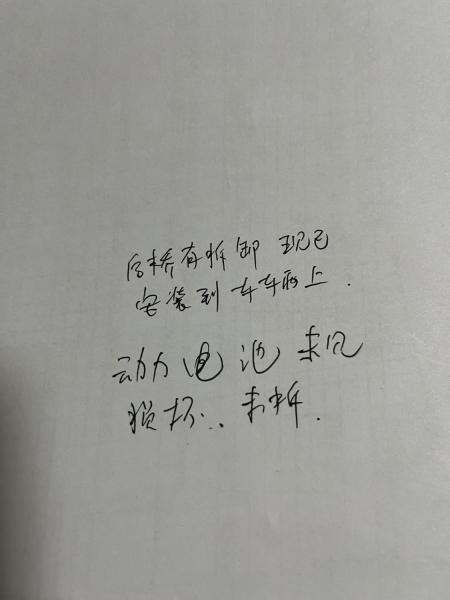 后桥有拆卸 现已
安装到车车辆上.
动力电池未见
损坏..未拆.